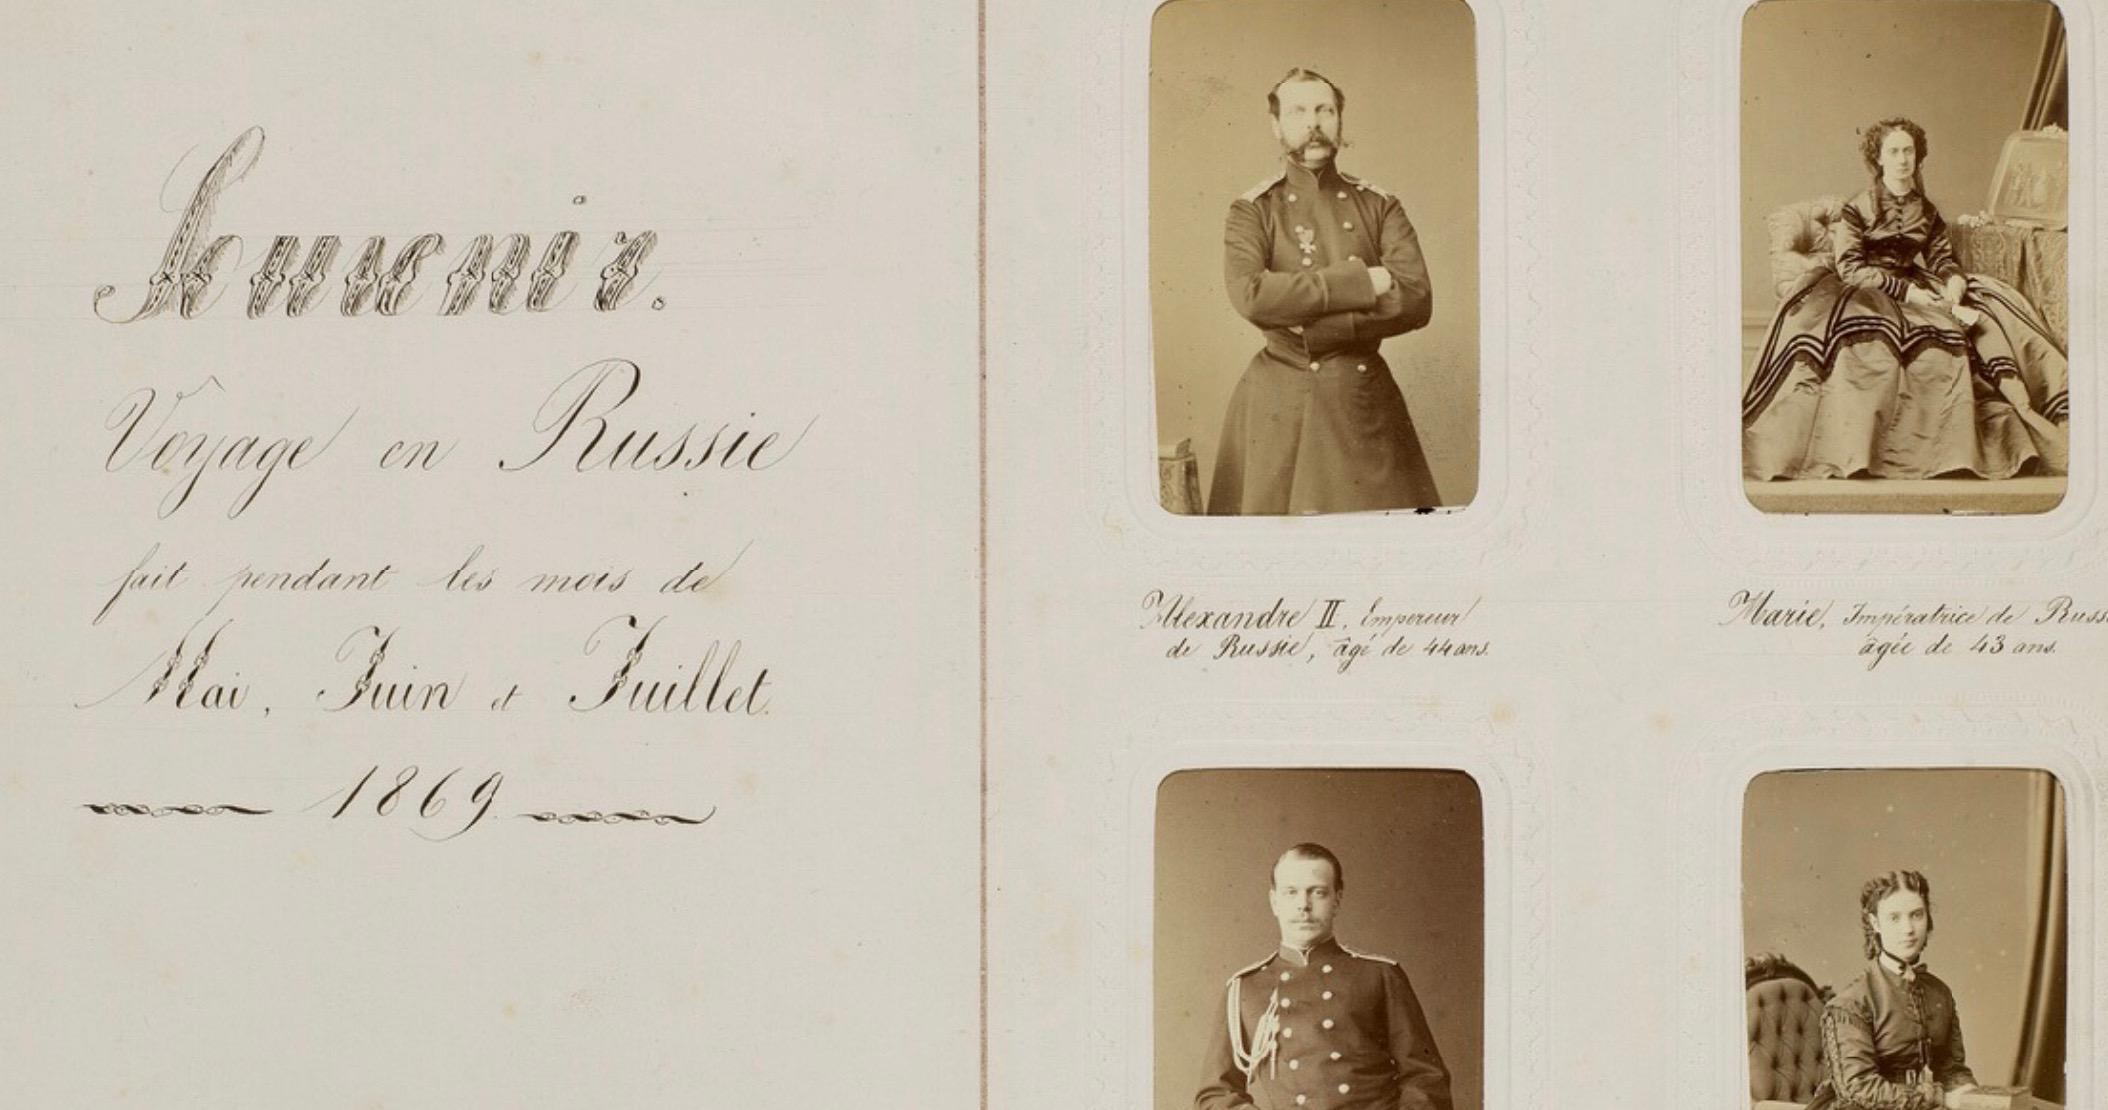 Souvenir.
Voyage en Russie
fait pendant les mois de
Mai, Juin et Juillet.
1869.
Alexandre II, Empereur
de Russie, âgé de 44 ans.
Marie, Impératrice de Russ
âgée de 43 ans.